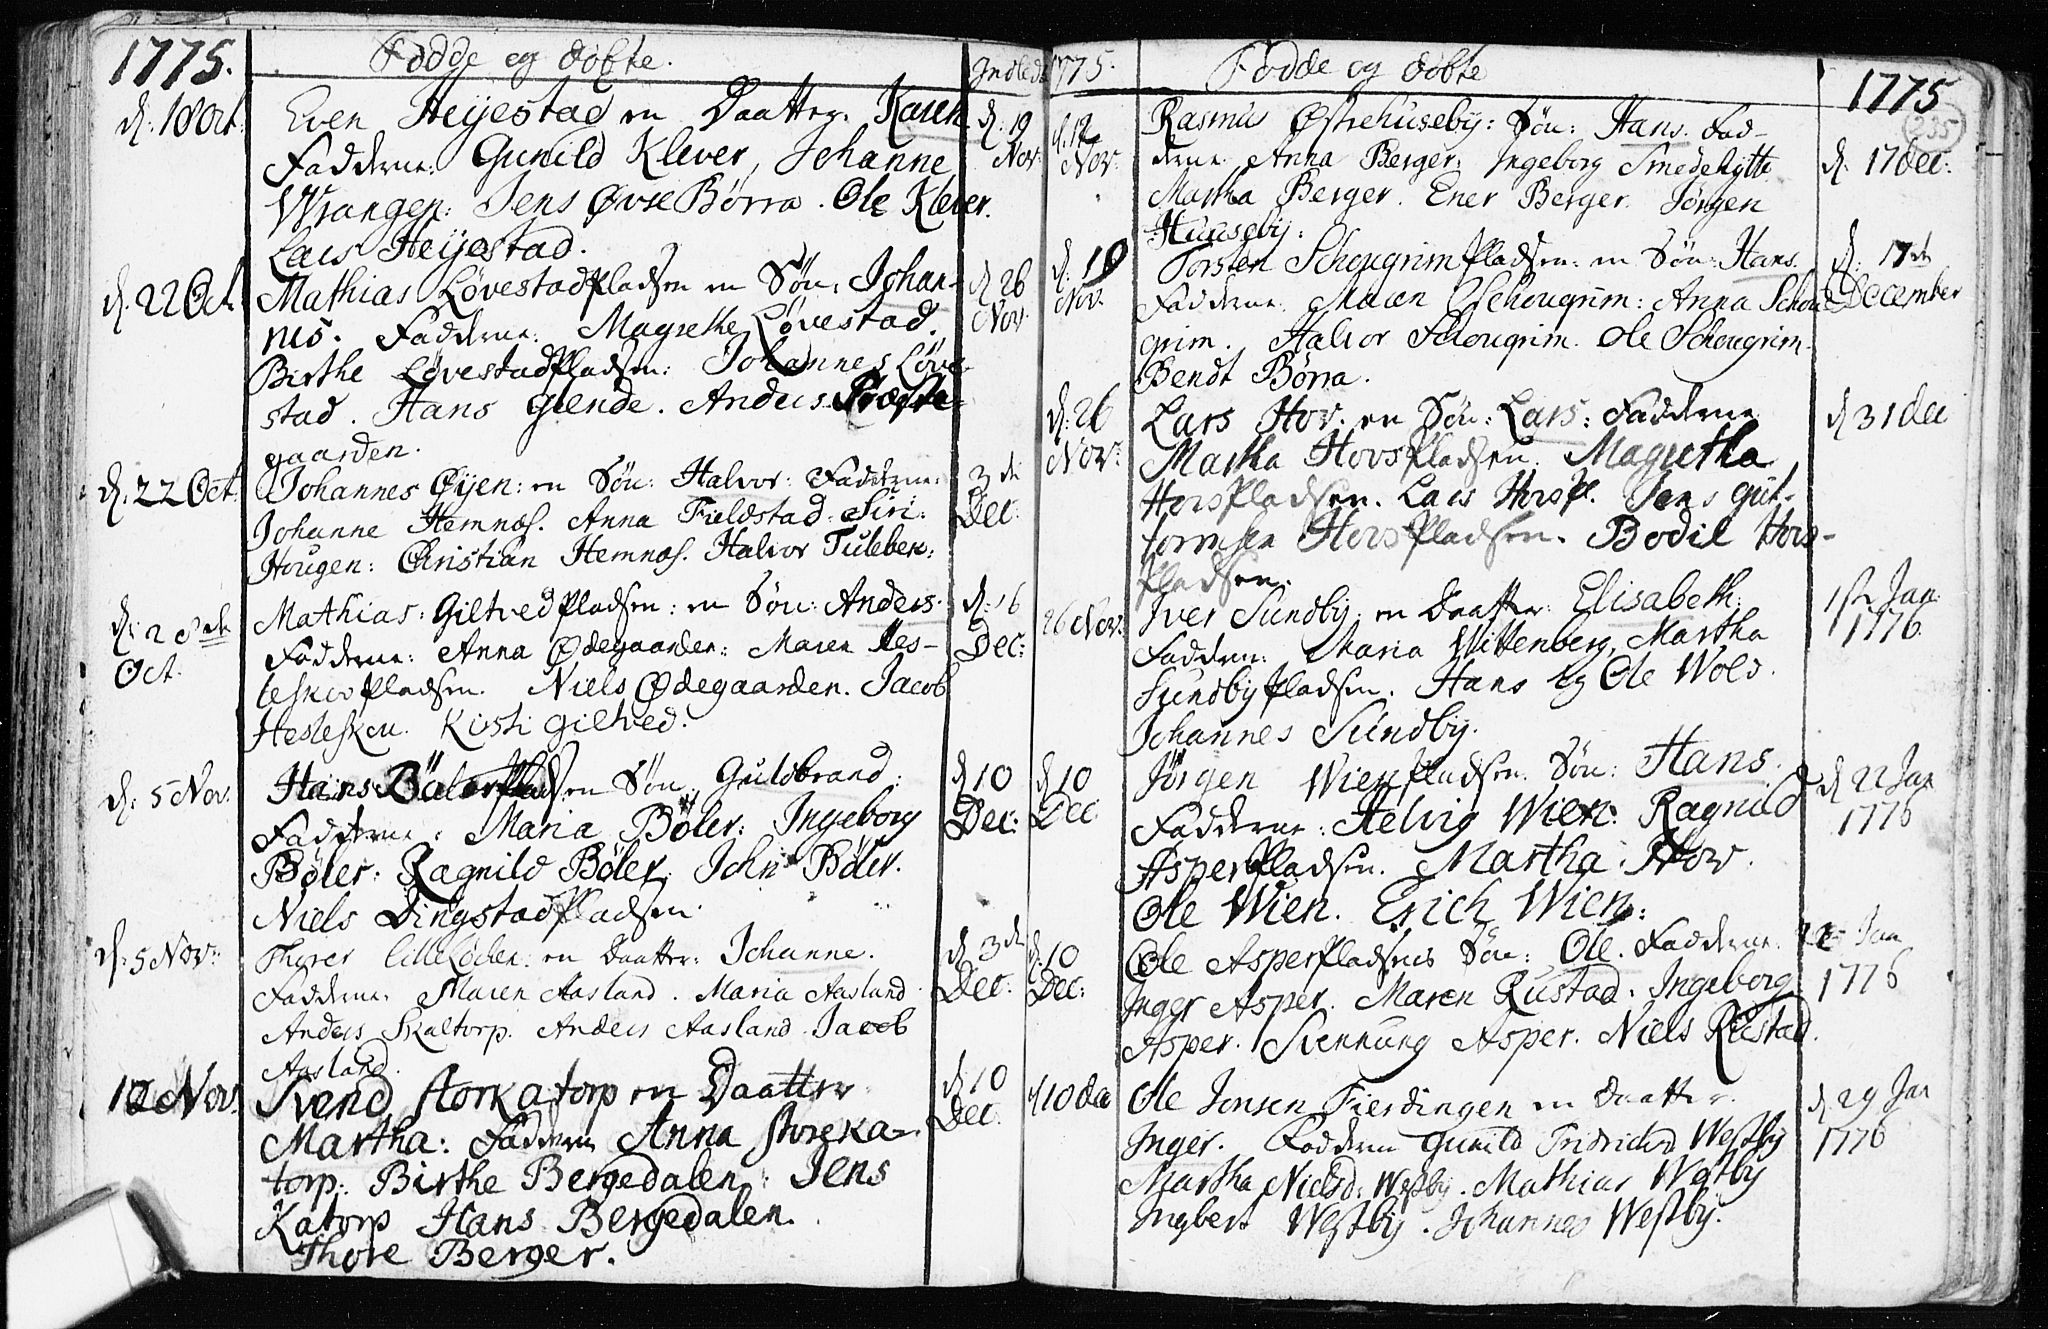 1775. Fødde og døbte. Indled:
d: 18 Oct: Even Heyestad en Daatter. Karen d: 19
Fadderne: Gunild Klever, Johanne Nov:
Wrangen: Jens Øvre Børra. Ole Klever.
Lars Heyestad.
d. 22 Oct. Mathias Løvestadpladsen en Søn: Johan- d 26
nes. Fadderne: Magrethe Løvestad. Nov.
Birthe Løvestadpladsen: Johannes Løve-
stad. Hans Glende. Anders Præste-
gaarden.
d: 22 Oct. Johannes Øyen: en Søn: Halvor: Fadderne: 3 de
Johanne Hemnæs. Anna Fieldstad. Siri: Dec:
Hougen: Christian Hemnæs. Halvor
d: 28de Mathias: Giltvedpladsen: en Søn: Anders. d: 16
Oct. Fadderne: Anna Ødegaarden: Maren Hes- Dec:
leskovpladsen. Niels Ødegaarden. Jacob
Hesleskov. Kirsti Giltved.
d: 5 Nov. Hans Bølerplads en Søn. Guldbrand: d 10
Fadderne: Maria Bøler: Ingeborg Dec:
Bøler: Ragnild Bøler, John Bøler.
Niels Dingstadpladsen.
d: 5 Nov: Thorer Lilleløchen: en Daatter: Johanne. d 3de
Fadderne. Maren Aasland. Maria Aasland. Dec:
Anders Skaltorp. Anders Aasland. Jacob
Aasland.
12 Nov. Svend Storkatorp en Daatter d: 10
Martha: Fadderne Anna Storka- Dec.
torp: Birthe Bergedalen: Jens
Katorp Hans Bergedalen.
Thore Berger.
1775. Fødde og døbte 1775
235
d. 12 Rasmus Østrehuseby: Søn: Hans. Fad-
Nov. derne. Anna Berger: Ingeborg Smedehytte d: 17 Dec:
Martha Berger. Ener Berger. Jørgen
Huuseby:
d: 19 Torsten Schougrimpladsen: en Søn: Hans. d: 17de
Nov. Fadderne. Maren Schougrim: Anna Schou- December
grim. Halvor Schougrim. Ole Schougrim.
Bendt Børra.
d: 26 Lars Hov. en Søn: Lars: Fadderne d 31 Dec
Nov: Martha Hovspladsen. Magretha
Hovspladsen. Lars Hovspl. Jens Gut-
tormsen Hovspladsen. Bodil Hovs-
pladsen.
26 Nov: Iver Sundby: en Daatter: Elisabeth: 1ste Jan:
Fadderne: Maria Wittenberg, Martha 1776.
Sundbypladsen. Hans og Ole Wold.
Johannes Sundby.
d 10 Jørgen Wienpladsen. Søn: Hans. d 22 Jan
Dec Fadderne: Helvig Wien: Ragnild 1776
Asperpladsen. Martha Hov.
Ole Wien. Erich Wien:
d: 10 Ole Asperpladsens Søn: Ole. Fadderne. 22 Jan
Dec: Inger Asper. Maren Rustad. Ingeborg 1776
Asper. Svennung Asper. Niels Rustad.
d 10 Dec Ole Jensen Fierdingen en Daatter. d. 29 Jan
Inger. Fadderne Gunild Westby 1776
Martha Nielsd: Westby. Mathias Westby
Ingbert Westby. Johannes Westby.